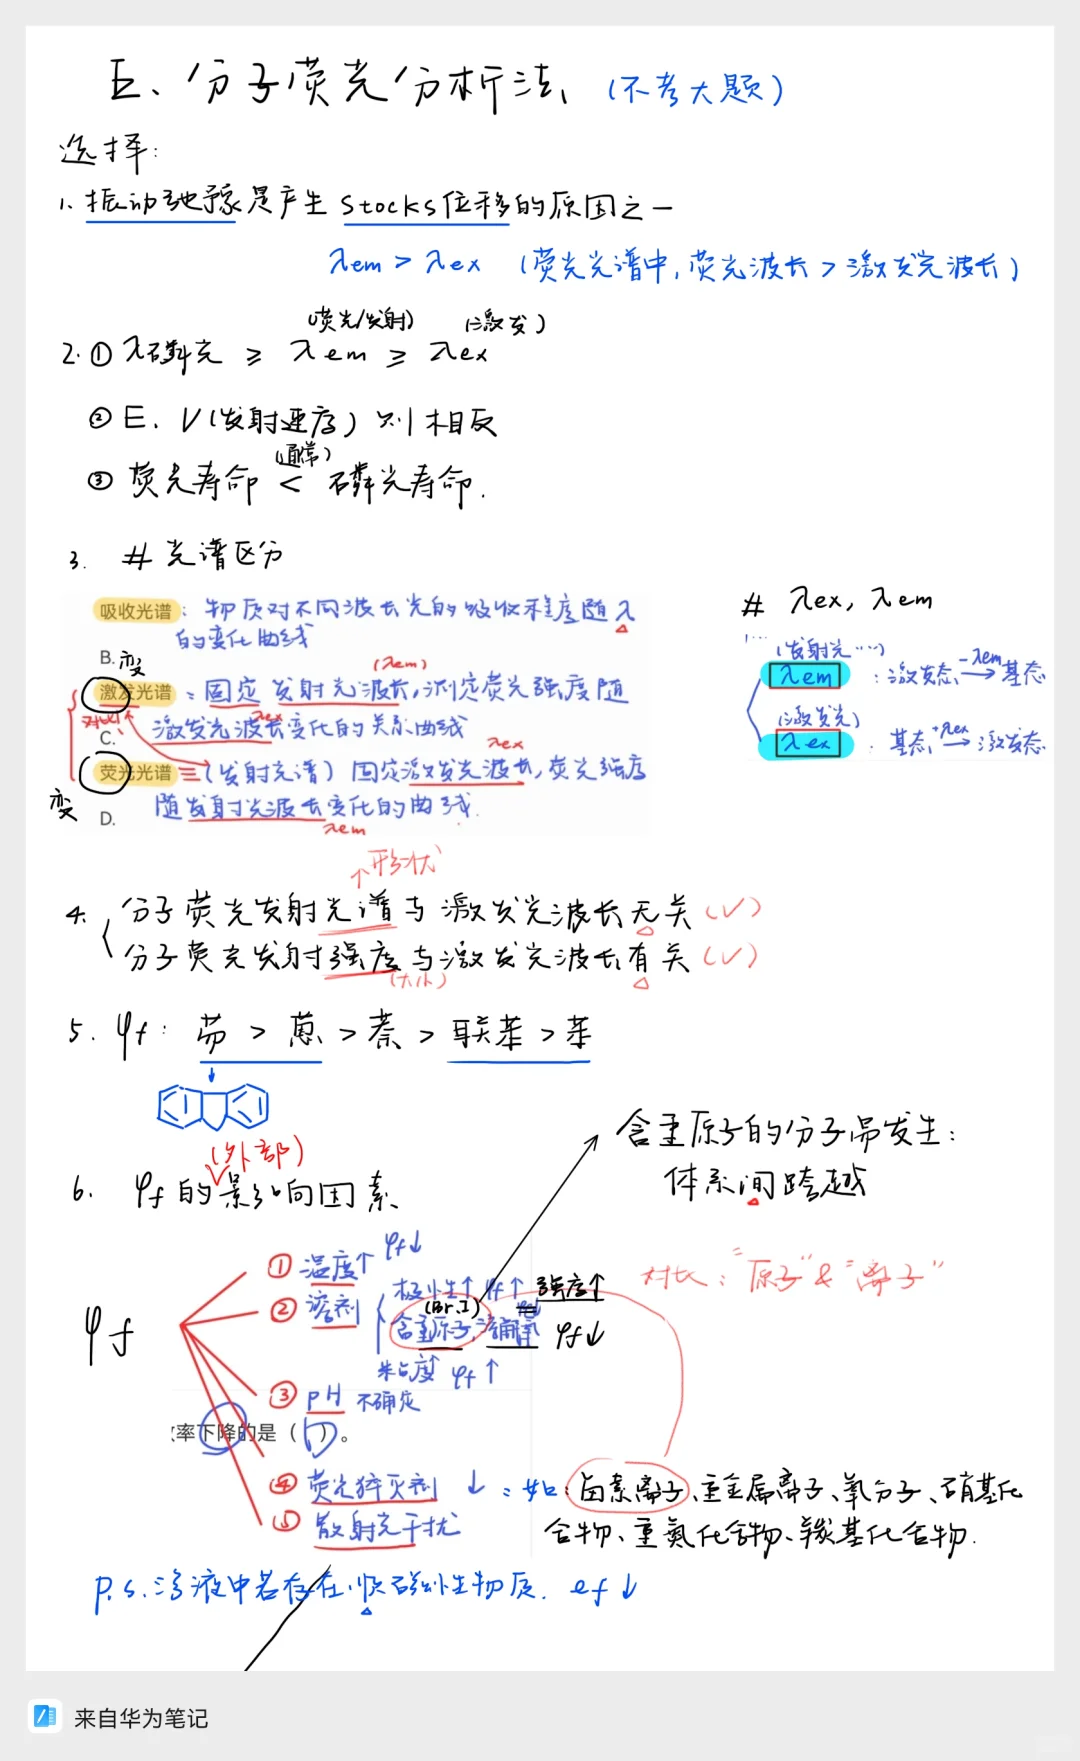 E、分子荧光分析法、(不考大题)
选择:
1、振动弛豫是产生 Stocks位移的原因之一
λem > λex (荧光光谱中,荧光波长 > 激发光波长)
(荧光/发射) (激发)
2.① λ磷光 ≥ λem ≥ λex
② E、V(发射速度) 则相反
(通常)
③ 荧光寿命 < 磷光寿命.
3. # 光谱区分
吸收光谱: 物质对不同波长光的吸收程度随λ
的变化曲线
B. 变
(λem)
激发光谱: 固定发射光波长,测定荧光强度随
λex
激发光波长变化的关系曲线
C.
λex
荧光光谱 (发射光谱) 固定激发光波长,荧光强度
变 随发射光波长变化的曲线.
D.
λem
# λex, λem
(发射光……)
λem : 激发态 -λem→ 基态
(激发光)
λex : 基态 +λex→ 激发态
↑形状
4. 分子荧光发射光谱与激发光波长无关 (✓)
分子荧光发射强度与激发光波长有关 (✓)
(大小)
5. φf: 芴 > 蒽 > 萘 > 联苯 > 苯
(外部)
6. φf 的影响因素
含重原子的分子易发生:
体系间跨越
φf
① 温度↑ φf↓
② 溶剂
极性↑ φf↑ 强度↑
(Br.I)
含重原子, φf↓
粘度↑ φf↑
对比: "原子" & "离子"
③ pH 不确定
率下降的是( b )。
④ 荧光猝灭剂 ↓ : 如: 卤素离子、重金属离子、氧分子、硝基化
合物、重氮化合物、羰基化合物.
⑤ 散射光干扰
p.s.溶液中若存在顺磁性物质. ef↓
来自华为笔记